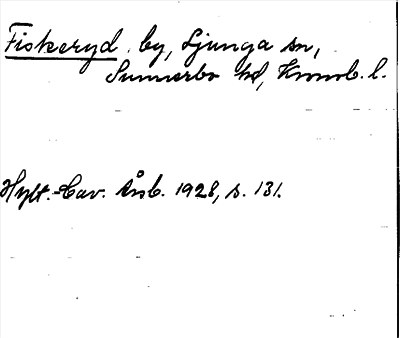 Fiskeryd by, Ljunga sn,
Sunnerbo hd, Kronob. l.
Hylt.-Cav. Årsb. 1928, s. 131.